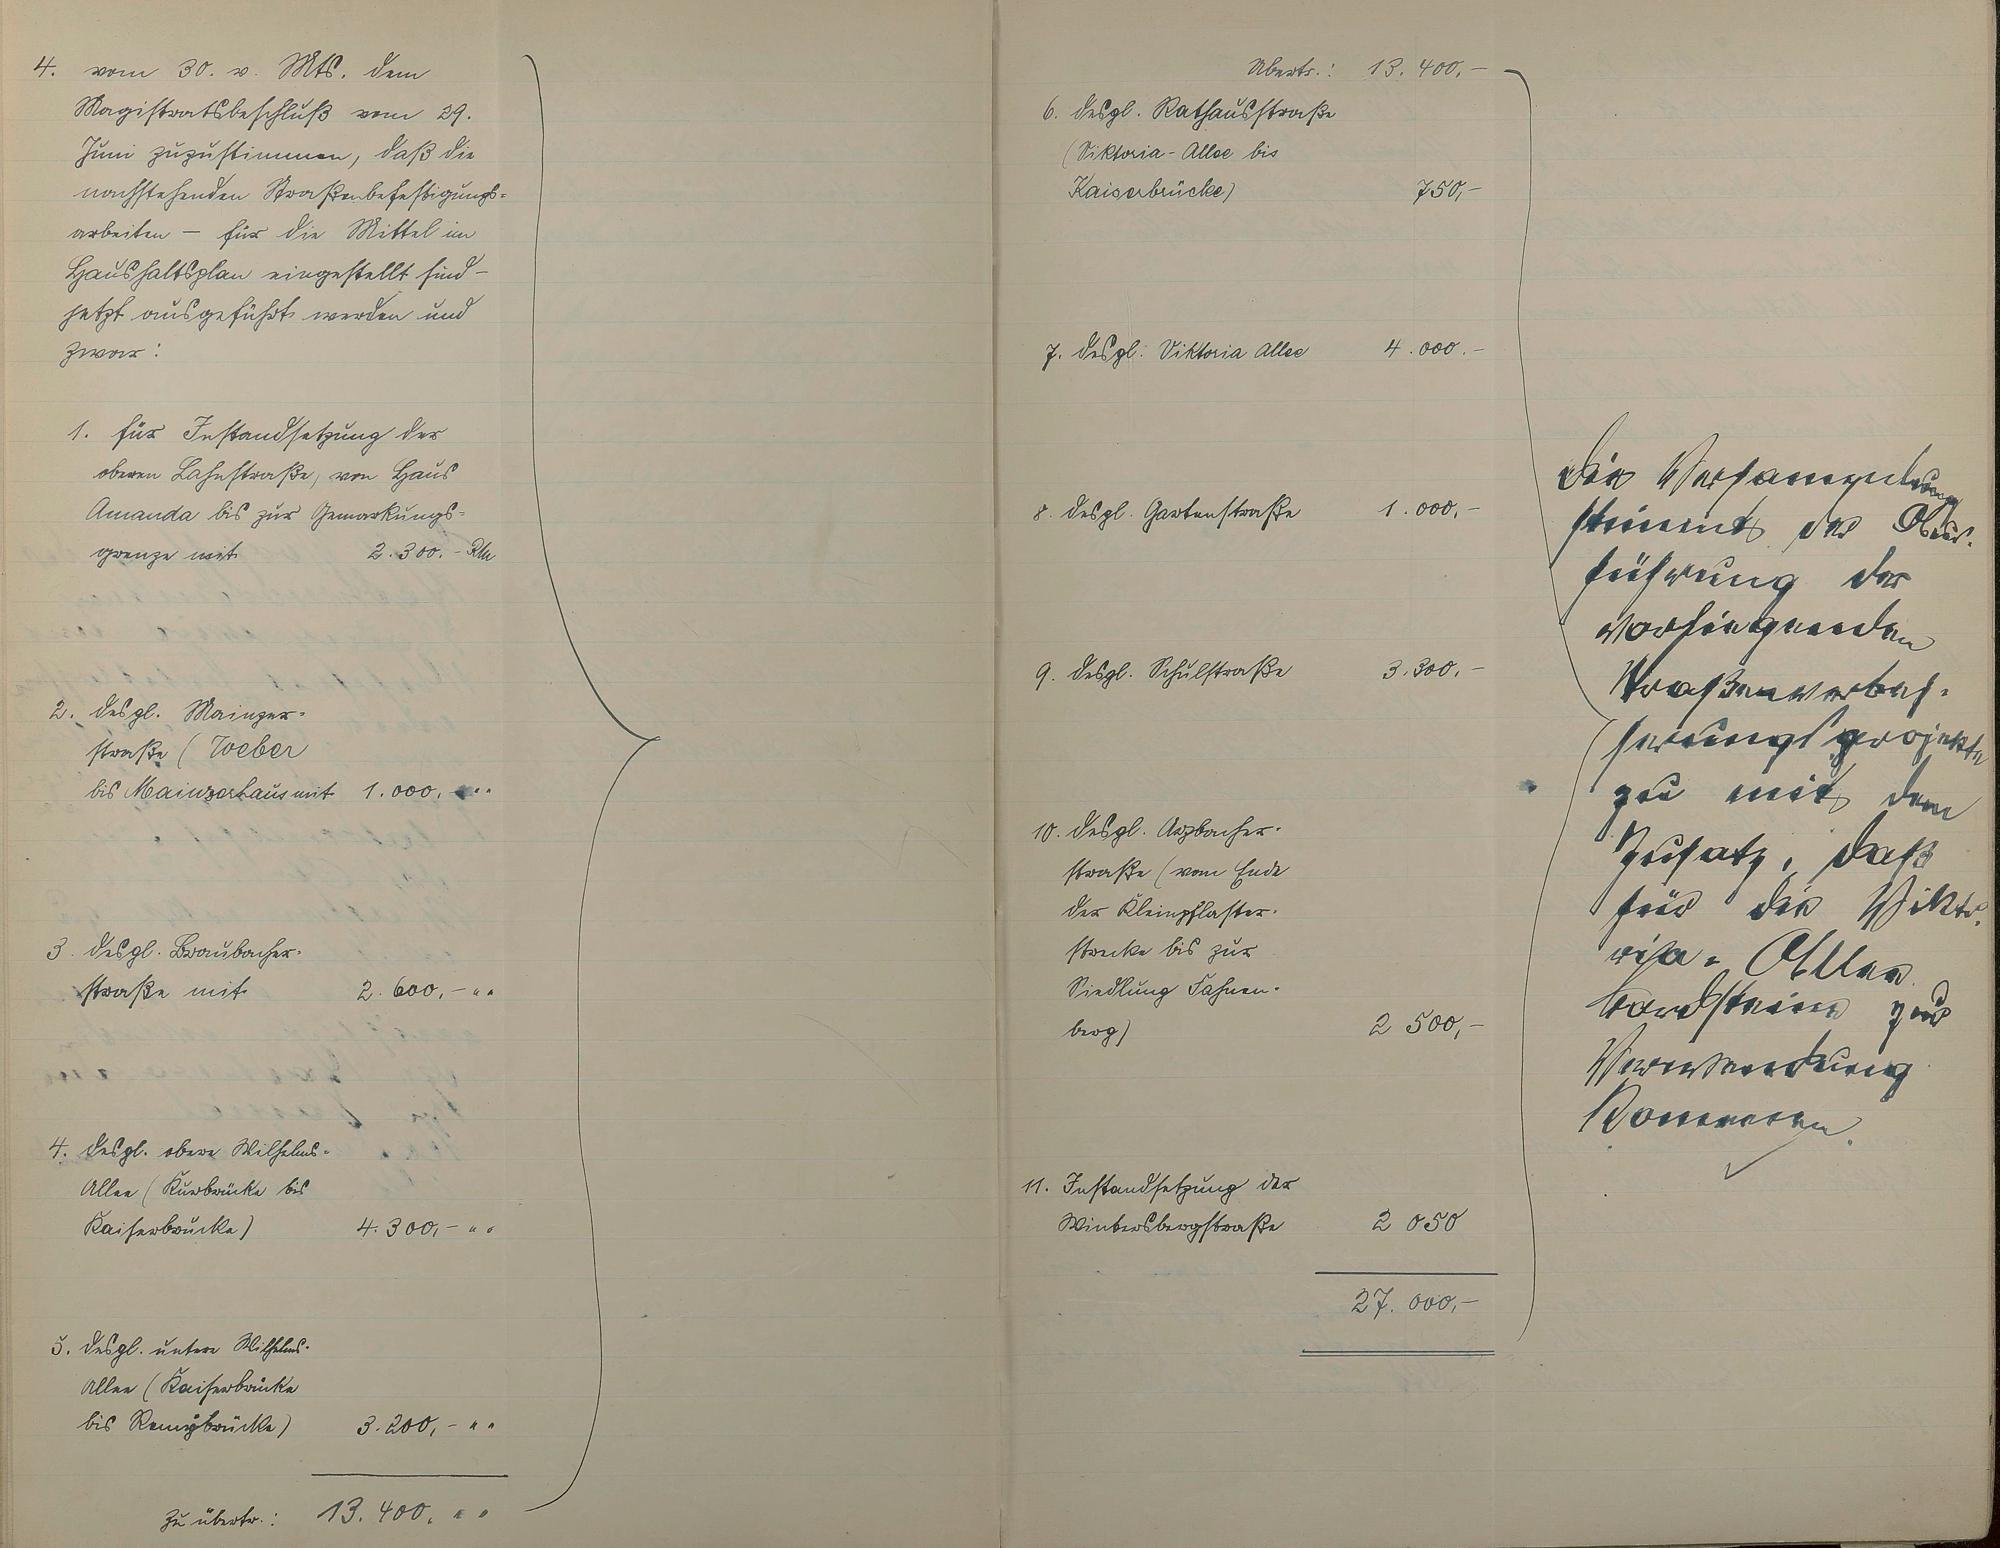 4. vom 30. v. Mts. dem
Magistratsbeschluß vom 29.
Juni zuzustimmen, daß die
nachstehenden Straßenbefestigungs-
arbeiten – für die Mittel im
Haushaltsplan eingestellt sind –
jetzt ausgeführt werden und
zwar:
1. für Instandsetzung der
oberen Lahnstraße, von Haus
Amanda bis zur Gemarkungs-
grenze mit 2.300.- RM
2. desgl. Mainzer-
straße (Weber
bis Mainzerhaus mit 1.000.- " "
3. desgl. Braubacher-
straße mit 2.600,- " "
4. desgl. obere Wilhelms-
Allee (Kurbrücke bis
Kaiserbrücke) 4.300,- " "
5. desgl. untere Wilhelms-
Allee (Kaiserbrücke
bis Remybrücke) 3.200,- " "
zu übertr.: 13.400. " "
Übertr.: 13.400,-
6. desgl. Rathausstraße
(Viktoria-Allee bis
Kaiserbrücke) 750,-
7. desgl. Viktoria Allee 4.000.-
8. desgl. Gartenstraße 1.000,-
9. desgl. Schulstraße 3.300,-
10. desgl. Arzbacher-
straße (vom Ende
der Kleinpflaster-
strecke bis zur
Siedlung Fahnen-
berg) 2 500,-
11. Instandsetzung der
Wintersbergstraße 2 050
27.000,-
Die Versammlung
stimmt der
führung der
vorliegenden
Straßenverbes-
serungsprojekte
zu mit dem
Zusatz, daß
für die Vikto-
ria-Allee
Bordsteine zur
Verwendung
kommen.